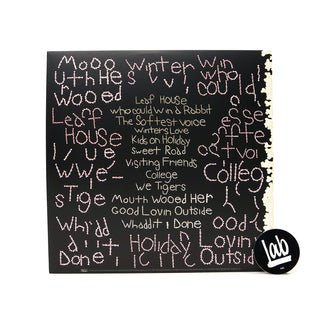 Mooo Winter Win
uth He who
rooed could
Leaf
House
Leaf House
who could win a Rabbit
The Softest voice
Winters Love
Kids on Holiday
Sweet Road
Visiting Friends
College
We Tigers
Mouth Wooed Her
Good Lovin Outside
Whaddit I Done
College
WWe
Stige
Whidd
ait
ood
Holiday Lovin
Outside
lab